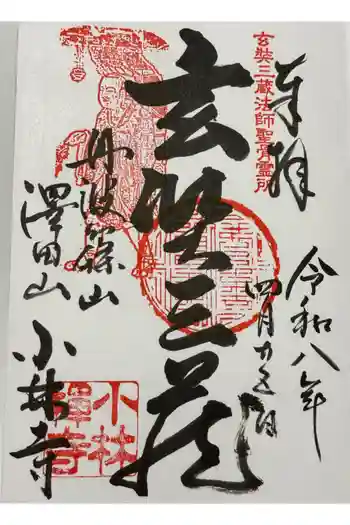 奉拝
玄奘三蔵法師聖骨霊所
令和八年
四月廿五日
玄奘三蔵
丹波篠山
澤田山
小林寺
小林
禅寺